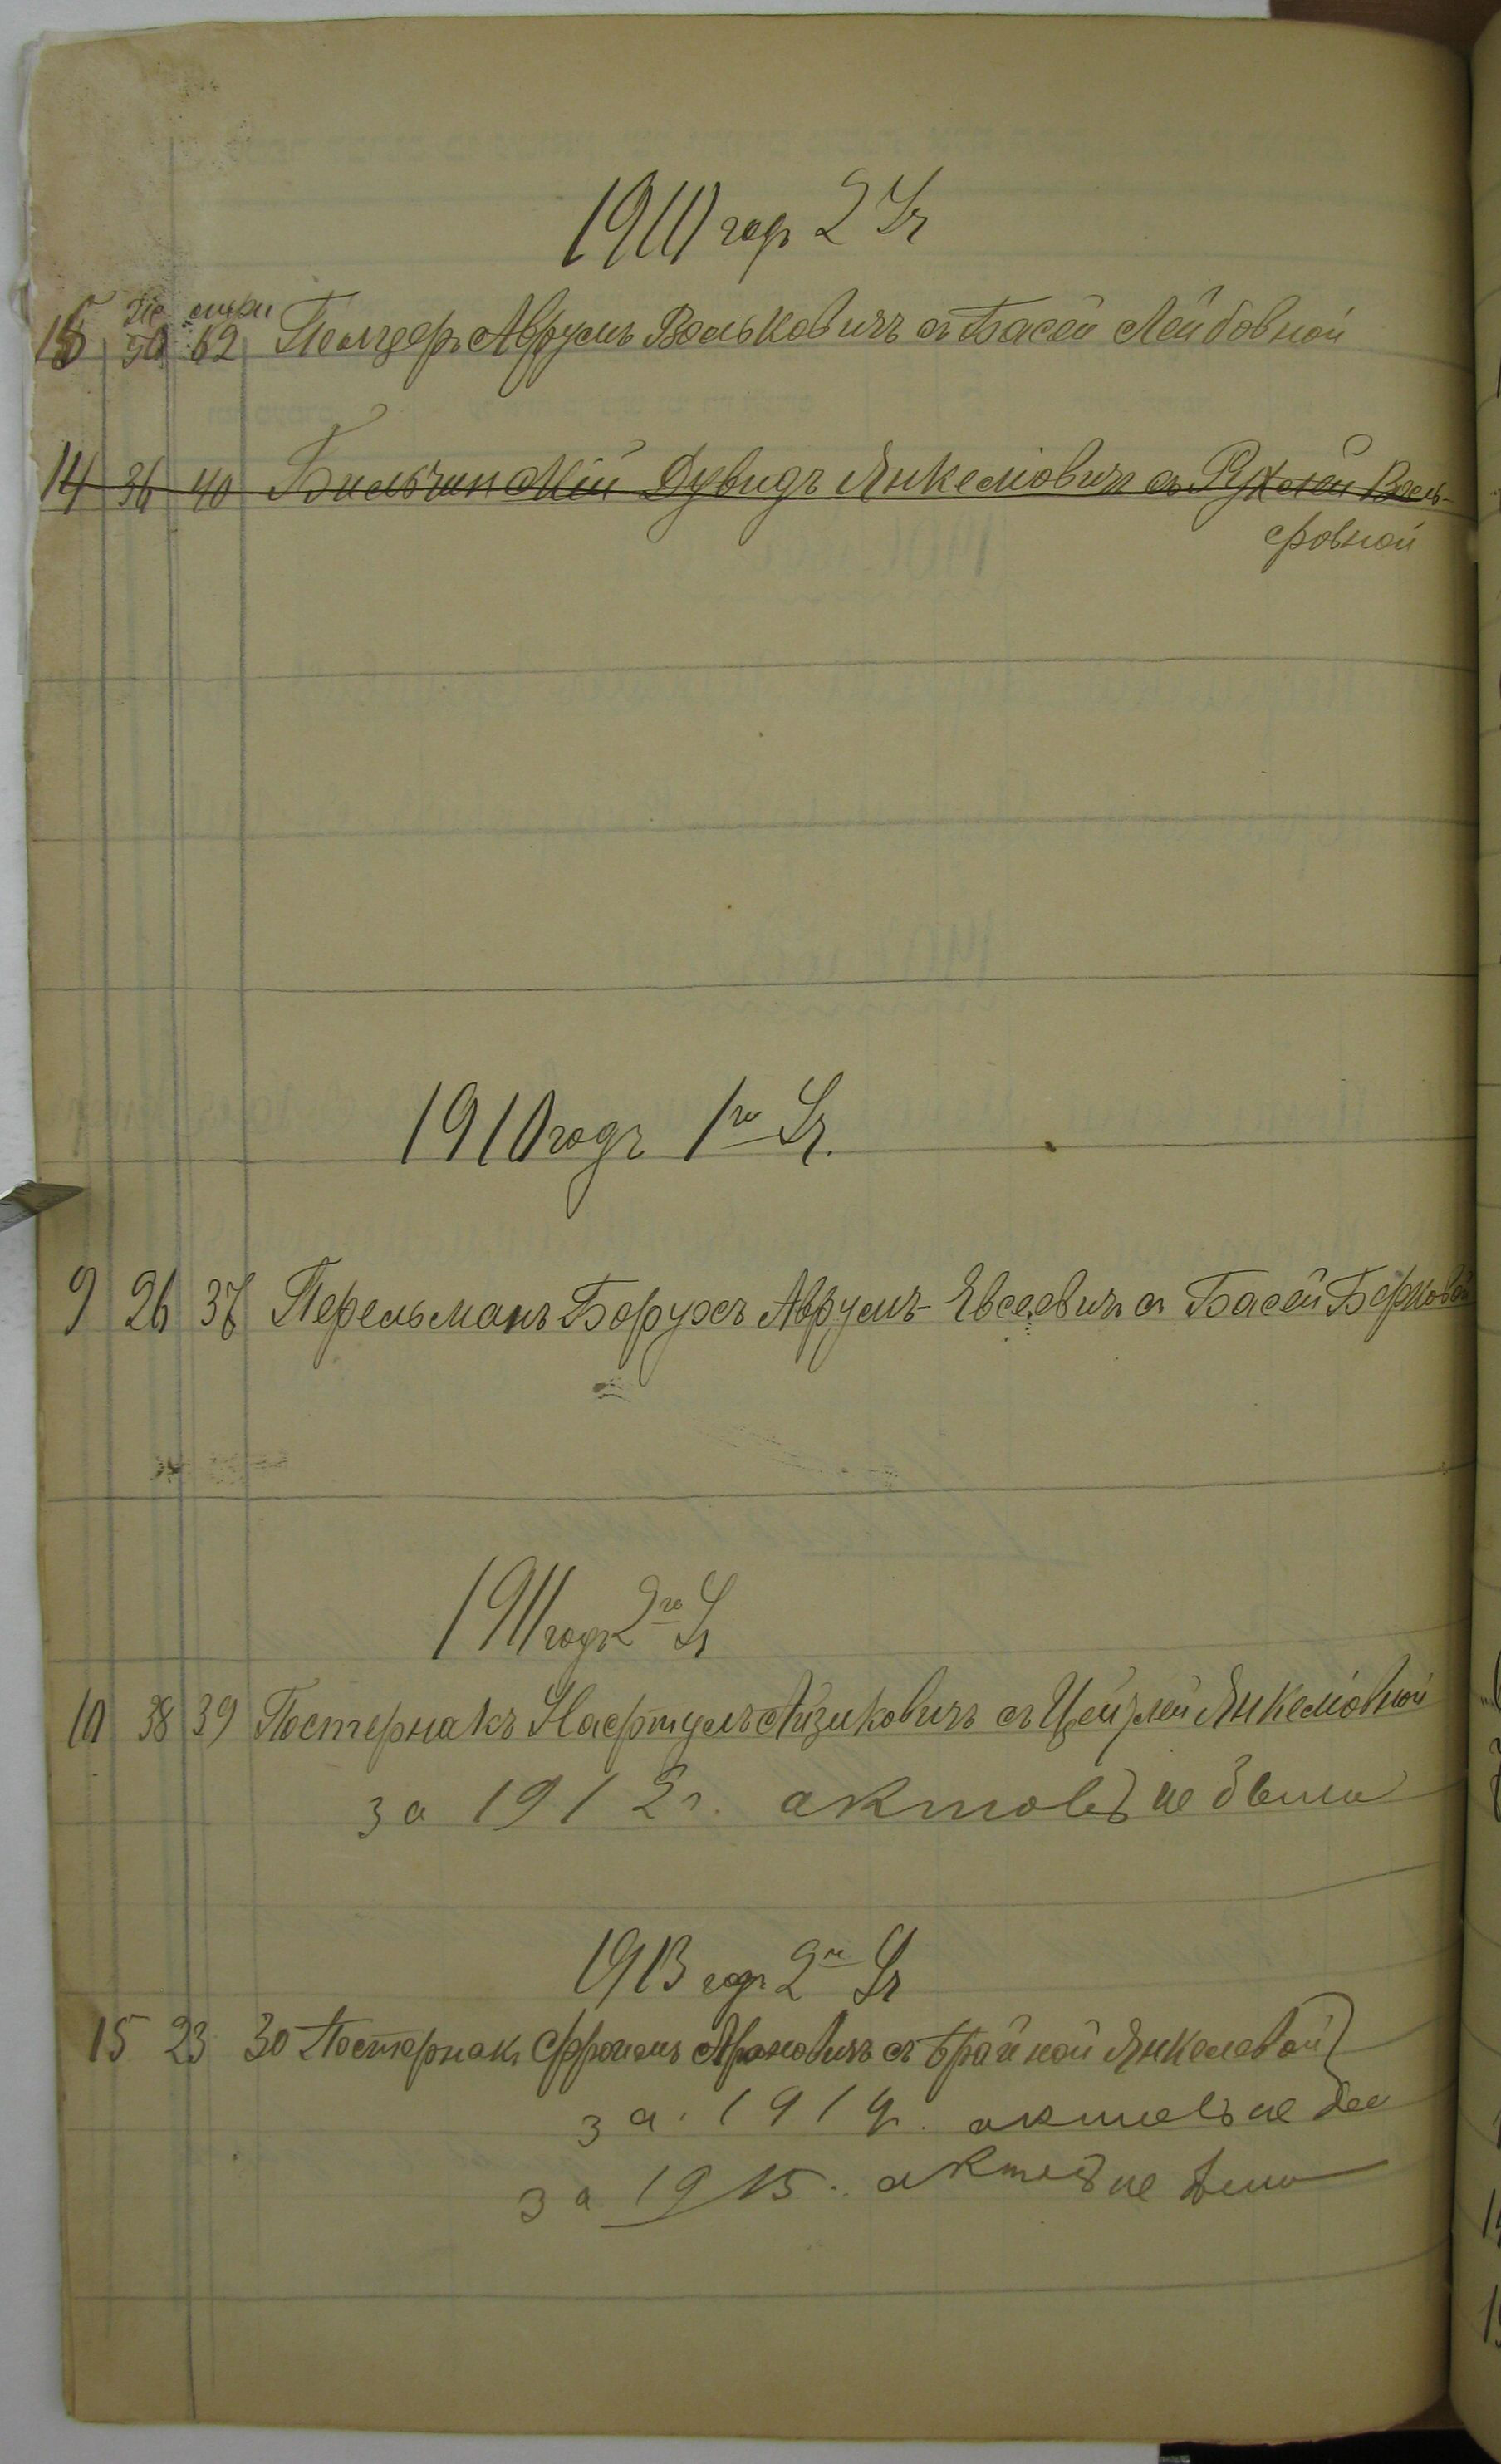 1910 годъ 2 Уч
15 50 62 Пельцеръ Аврумъ Вольковичъ съ Басей Лейбовной
14 36 40 Бильчинскій Дувидъ Янкеліовичъ съ Рухлей Воль-
фовной
1910 годъ 1го Уч.
9 26 37 Перельманъ Борухъ Аврумъ-Евсеевичъ съ Басей Берковой
1911 годъ 2го Уч
10 38 39 Постернакъ Нафтулъ Айзиковичъ съ Цейзлей Янкеліовной
за 1912 г. актовъ не были
1913 годъ 2го Уч
15 23 30 Постернакъ Фроимъ Ароновичъ съ Брайной Янкелевой
за 1914. актовъ не
за 1915. актовъ не были